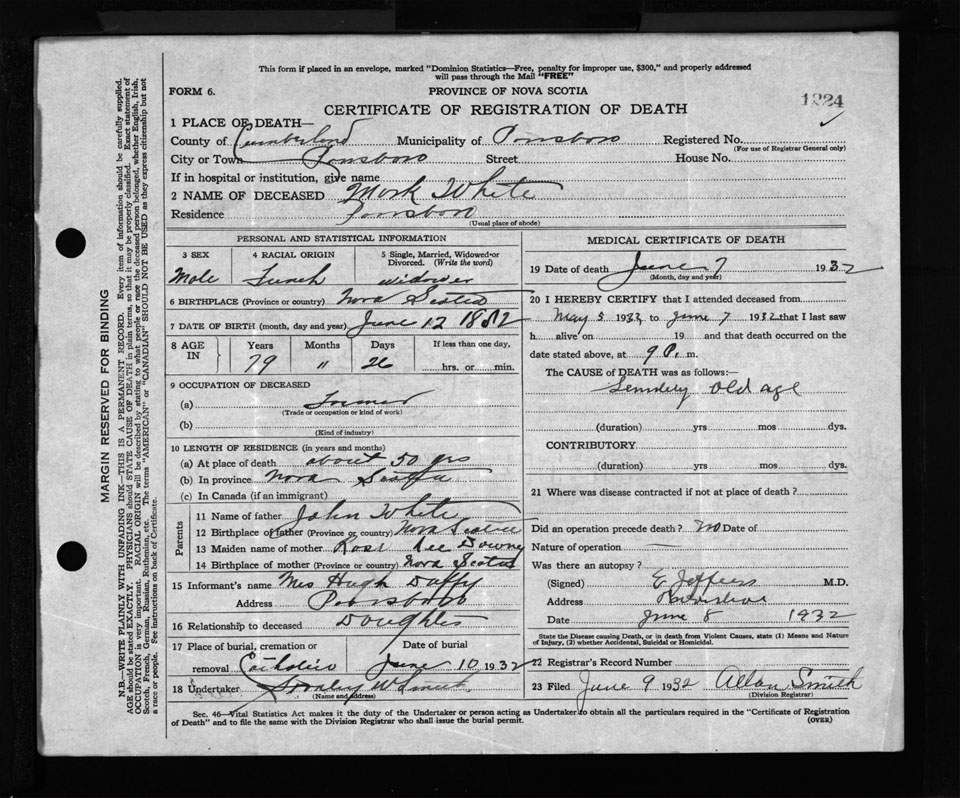 This form if placed in an envelope, marked "Dominion Statistics—Free, penalty for improper use, $300," and properly addressed
will pass through the Mail "FREE"
FORM 6. PROVINCE OF NOVA SCOTIA
CERTIFICATE OF REGISTRATION OF DEATH 1224
1 PLACE OF DEATH—
County of Cumberland Municipality of Parrsboro Registered No.
(For use of Registrar General only)
City or Town Parrsboro Street House No.
If in hospital or institution, give name
2 NAME OF DECEASED Mark White
Residence Parrsboro
(Usual place of abode)
PERSONAL AND STATISTICAL INFORMATION
3 SEX 4 RACIAL ORIGIN 5 Single, Married, Widowed or Divorced. (Write the word)
Male French widower
6 BIRTHPLACE (Province or country) Nova Scotia
7 DATE OF BIRTH (month, day and year) June 12 1852
8 AGE IN Years Months Days If less than one day,
79 " 26 hrs. or min.
9 OCCUPATION OF DECEASED
(a) Farmer
(Trade or occupation or kind of work)
(b)
(Kind of industry)
10 LENGTH OF RESIDENCE (in years and months)
(a) At place of death about 50 yrs
(b) In province Nova Scotia
(c) In Canada (if an immigrant)
Parents
11 Name of father John White
12 Birthplace of father (Province or country) Nova Scotia
13 Maiden name of mother Rose Downey
14 Birthplace of mother (Province or country) Nova Scotia
15 Informant's name Mrs Hugh Duffy
Address Parrsboro
16 Relationship to deceased Daughter
17 Place of burial, cremation or removal Date of burial
Catholic June 10 1932
18 Undertaker Stanley W Smith
(Name and address)
MEDICAL CERTIFICATE OF DEATH
19 Date of death June 7 1932
(Month, day and year)
20 I HEREBY CERTIFY that I attended deceased from
May 5 1932 to June 7 1932 that I last saw
h alive on 19 and that death occurred on the
date stated above, at 9 P. m.
The CAUSE of DEATH was as follows:—
old age
(duration) yrs mos dys.
CONTRIBUTORY
(duration) yrs mos dys.
21 Where was disease contracted if not at place of death?
Did an operation precede death? no Date of
Nature of operation
Was there an autopsy?
(Signed) E Jeffers M.D.
Address Parrsboro
Date June 8 1932
State the Disease causing Death, or in death from Violent Causes, state (1) Means and Nature
of Injury, (2) whether Accidental, Suicidal or Homicidal.
22 Registrar's Record Number
23 Filed June 9 1932 Allan Smith
(Division Registrar)
Sec. 46—Vital Statistics Act makes it the duty of the Undertaker or person acting as Undertaker to obtain all the particulars required in the "Certificate of Registration
of Death" and to file the same with the Division Registrar who shall issue the burial permit. (OVER)
MARGIN RESERVED FOR BINDING
N.B.—WRITE PLAINLY WITH UNFADING INK—THIS IS A PERMANENT RECORD. Every item of information should be carefully supplied.
AGE should be stated EXACTLY. PHYSICIANS should STATE CAUSE OF DEATH in plain terms, so that it may be properly classified. Exact statement of
OCCUPATION is very important. RACIAL ORIGIN will be described by stating to what people or race the deceased person belonged, whether English, Irish,
Scotch, French, German, Russian, Ruthenian, etc. The terms "AMERICAN" or "CANADIAN" SHOULD NOT BE USED as they express citizenship but not
a race or people. See instructions on back of Certificate.